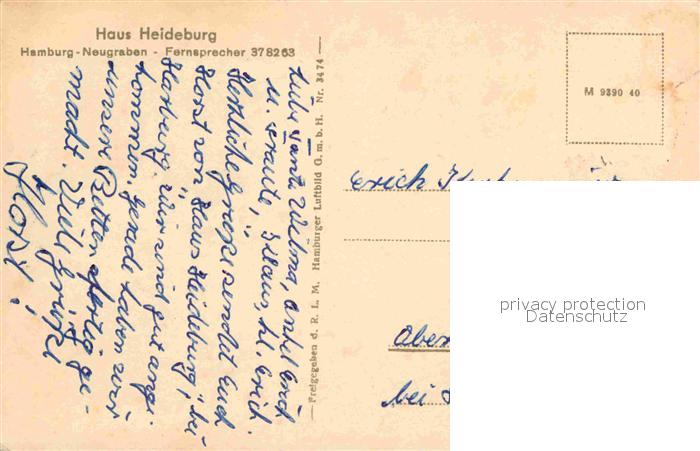 Haus Heideburg
Hamburg-Neugraben - Fernsprecher 378263
Liebe Tante Wilma, Onkel Erich
u. Traute, Klaus, kl. Erich.
Herzliche Grüße sendet Euch
Horst von "Haus Heideburg", bei
Harburg. Wir sind gut ange-
kommen. Gerade haben wir
unsere Betten fertig ge-
macht. Viele Grüße
Horst!
Freigegeben d. R. L. M. Hamburger Luftbild G. m. b. H. Nr. 3474
M 9390 40
Erich
bei
privacy protection
Datenschutz